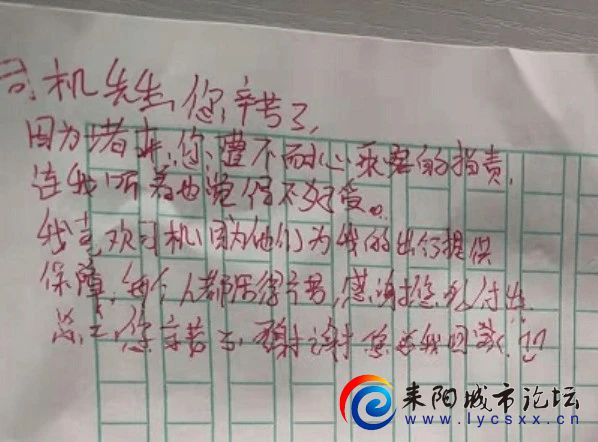 司机先生,您辛苦了,
因为堵车,您遭不耐心乘客的指责,
连我听着也觉得不好受。
我喜欢司机,因为他们为我的出行提供
保障,每个人都活得辛苦,感谢您的付出
总之,您辛苦了,谢谢您送我回家!
耒阳城市论坛
www.lycsxx.cn